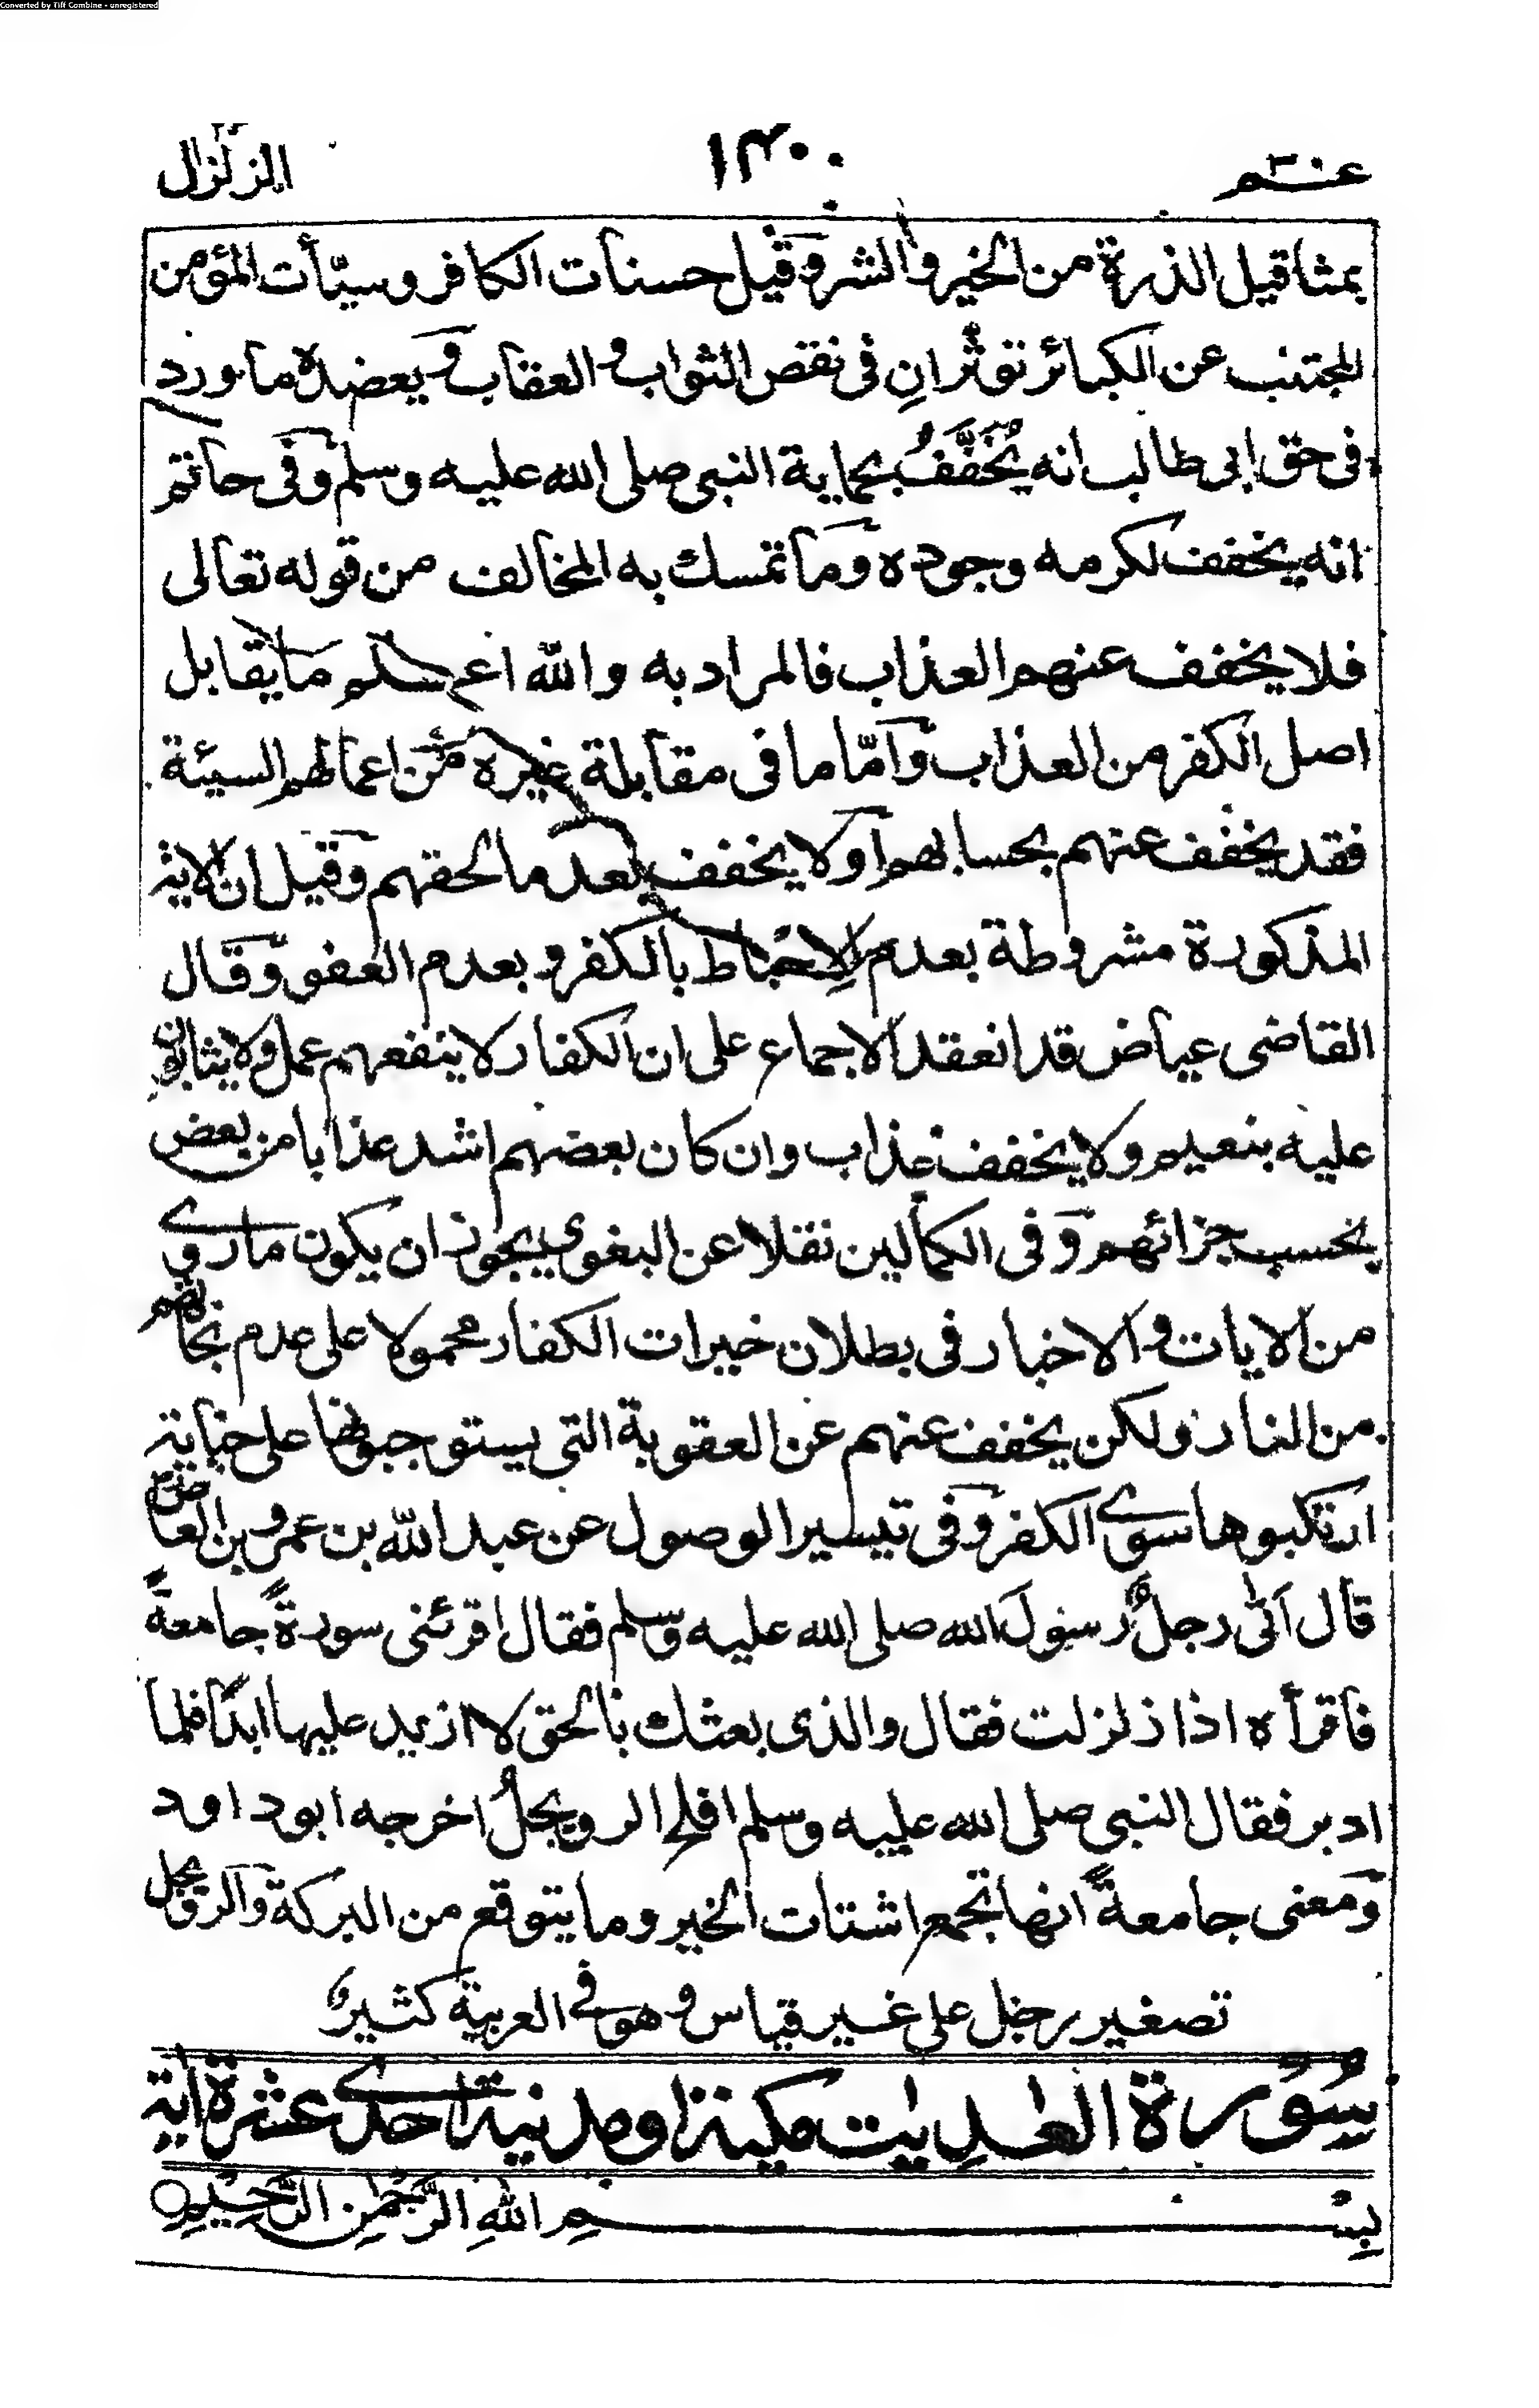 Converted by Tiff Combine - unregistered
عـــم ١٣٠٠ الزلزال
بمثاقيل الذرة من الخير والشر وقيل حسنات الكافر وسيّأت المؤمن
المجتنب عن الكبائر تؤثران فى نقص الثواب والعقاب ويعضده ما ورد
فى حق ابى طالب انه يُخَفَّفُ بحماية النبى صلى الله عليه وسلم وفى حاتم
انه يخفف لكرمه وجوده وما تمسك به المخالف من قوله تعالى
فلا يخفف عنهم العذاب فالمراد به والله اعلم ما يقابل
اصل الكفر من العذاب وامّا ما فى مقابلة غيره من اعمالهم السيئة
فقد يخفف عنهم بحسابهم او لا يخفف بعد ما لحقهم وقيل ان الاية
المذكورة مشروطة بعدم الاحباط بالكفر وبعدم العفو وقال
القاضى عياض قد انعقد الاجماع على ان الكفار لا ينفعهم عمل ولا يثابون
عليه بنعيم ولا يخفف عذاب وان كان بعضهم اشد عذابا من بعض
بحسب جزائهم وفى الكمالين نقلا عن البغوى يجوز ان يكون ما روى
من الايات والاخبار فى بطلان خيرات الكفار محمولا على عدم نجاتهم
من النار ولكن يخفف عنهم عن العقوبة التى يستوجبونها على جناية
ارتكبوها سوى الكفر وفى تيسير الوصول عن عبد الله بن عمرو بن العاص
قال اتى رجلٌ رسولَ الله صلى الله عليه وسلم فقال اقرئنى سورةً جامعةً
فاقرأه اذا زلزلت فقال والذى بعثك بالحق لا ازيد عليها ابدًا فلما
ادبر فقال النبى صلى الله عليه وسلم افلح الرويجلُ اخرجه ابوداود
ومعنى جامعةً انها تجمع اشتات الخير وما يتوقع من البركة والرويجل
تصغير رجل على غير قياس وهو فى العربية كثير
سُوْرة العٰديٰت مكية او مدنية احدى عشرة اية
بِسْــــمِ اللهِ الرَّحْمٰنِ الرَّحِيْمِ